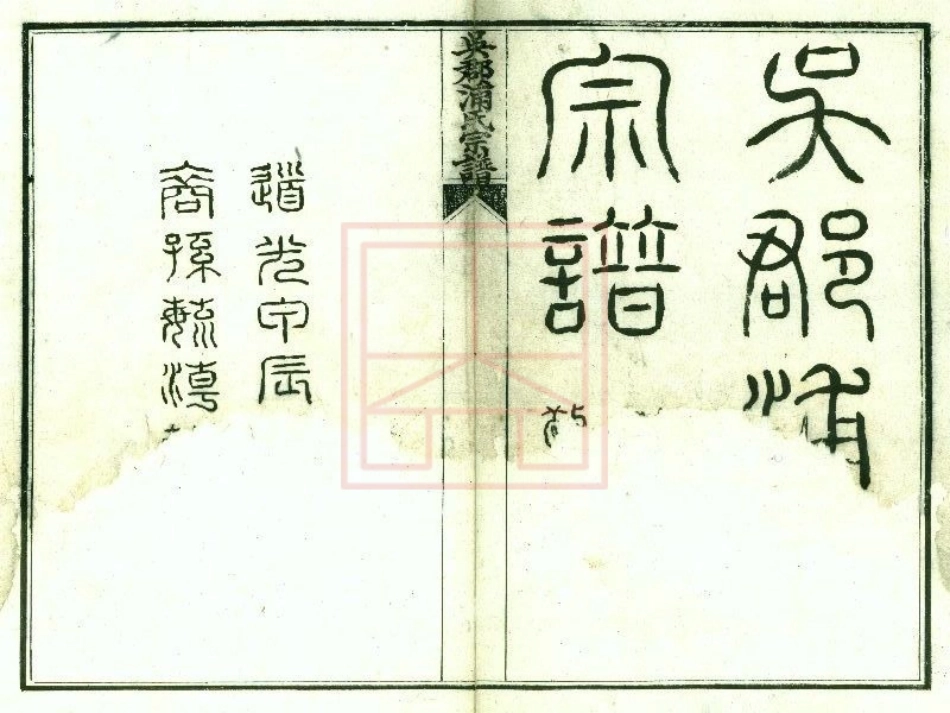 吳郡浦
宗譜
吳郡浦氏宗譜
道光甲辰
裔孫毓